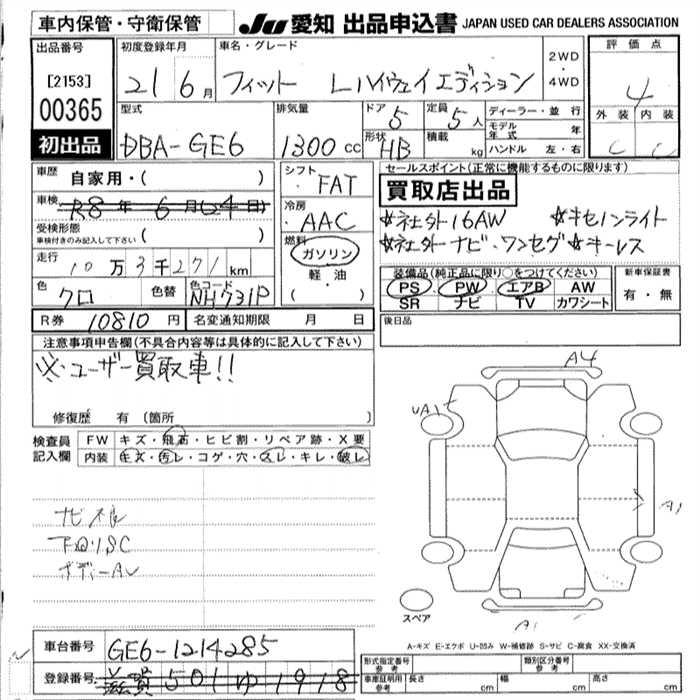 車内保管・守衛保管
JU 愛知 出品申込書 JAPAN USED CAR DEALERS ASSOCIATION
出品番号 初度登録年月 車名・グレード 2WD・4WD 評価点
[2153] 21 6月 フィット Lハイウェイエディション 4
00365
初出品
型式 排気量 ドア 定員 ディーラー・並行 外装 内装
DBA-GE6 1300cc 5 5人 モデル年式 年 C C
形状 HB 積載 kg ハンドル 左・右
車歴 自家用・( ) シフト FAT
セールスポイント(正常に機能するものに限ります)
買取店出品
車検 R8年6月(04日) 冷房 AAC
☆社外16AW ☆キセノンライト
受検形態 車検付きのみ記入して下さい ( ) 燃料 ガソリン・軽油・( )
☆社外ナビ・ワンセグ☆キーレス
走行 10万3千271km
装備品(純正品に限り○をつけてください) 新車保証書
PS PW エアB AW 有・無
SR ナビ TV カワシート
色 クロ 色替 色コード NH731P
R券 10810円 名変通知期限 月 日
後日品
注意事項申告欄(不具合内容等は具体的に記入して下さい)
※ユーザー買取車!!
修復歴 有(箇所
検査員記入欄 FW キズ・飛石・ヒビ割・リペア跡・X要
内装 キズ・汚レ・コゲ・穴・スレ・キレ・破レ
A4
UA1
A1
ナビ不良
下回りSC
ボディーAU
スペア
A1
A-キズ E-エクボ U-凹み W-補修跡 S-サビ C-腐食 XX-交換済
車台番号 GE6-1214285
登録番号 滋賀501ゆ1918
型式指定番号 参考 類別区分番号 参考
車庫証明用 参考 長さ cm 幅 cm 高さ cm